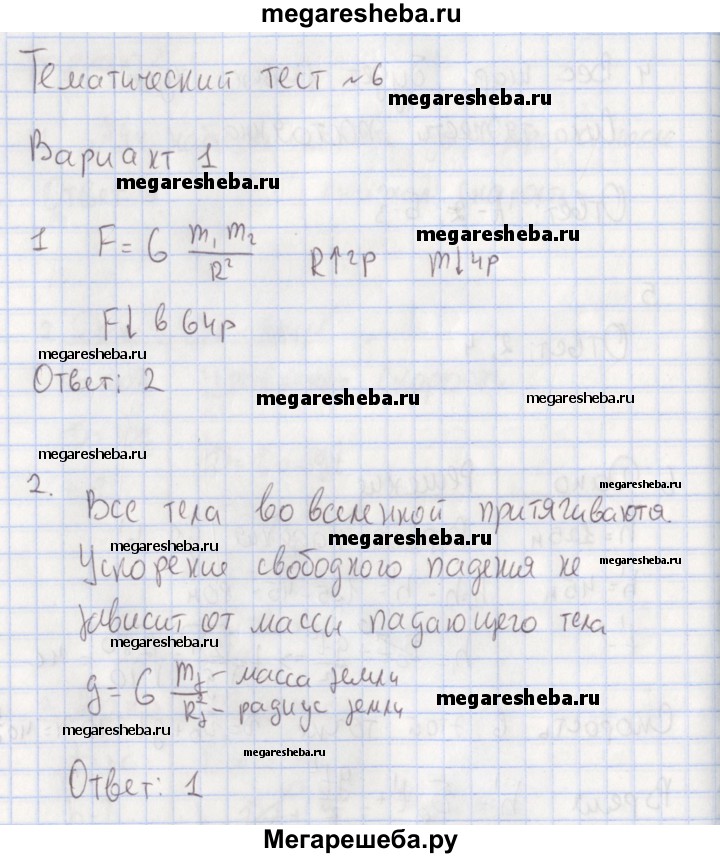 megaresheba.ru
Тематический тест №6
megaresheba.ru
Вариант 1
megaresheba.ru
1 F = G m₁ m₂ / R² R↑2р m↓4р
megaresheba.ru
F↓ в 64р
megaresheba.ru
Ответ: 2
megaresheba.ru
megaresheba.ru
megaresheba.ru
2. Все тела во вселенной притягиваются.
megaresheba.ru
megaresheba.ru
megaresheba.ru
Ускорение свободного падения не
megaresheba.ru
зависит от массы падающего тела
megaresheba.ru
g = G mз - масса земли / Rз² - радиус земли
megaresheba.ru
megaresheba.ru
megaresheba.ru
Ответ: 1
Мегарешеба.ру